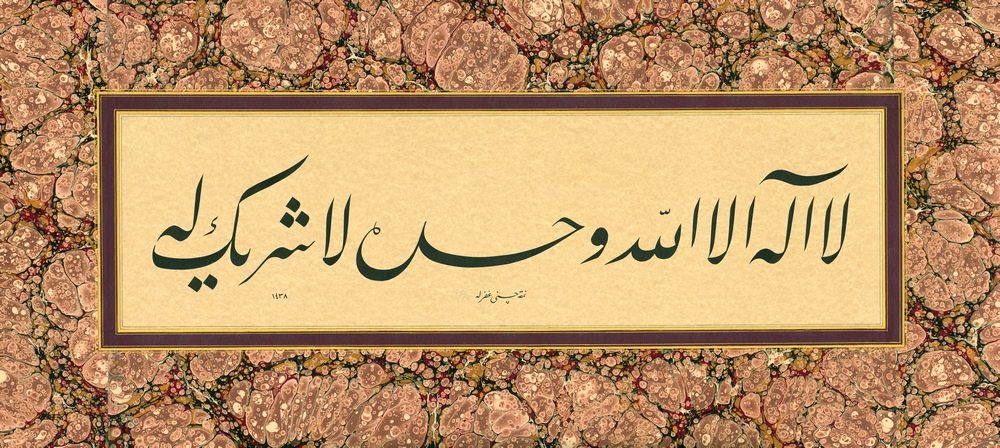 لا اله الا الله وحده لا شريك له
نمقه چنی غفرله
١٤٣٨